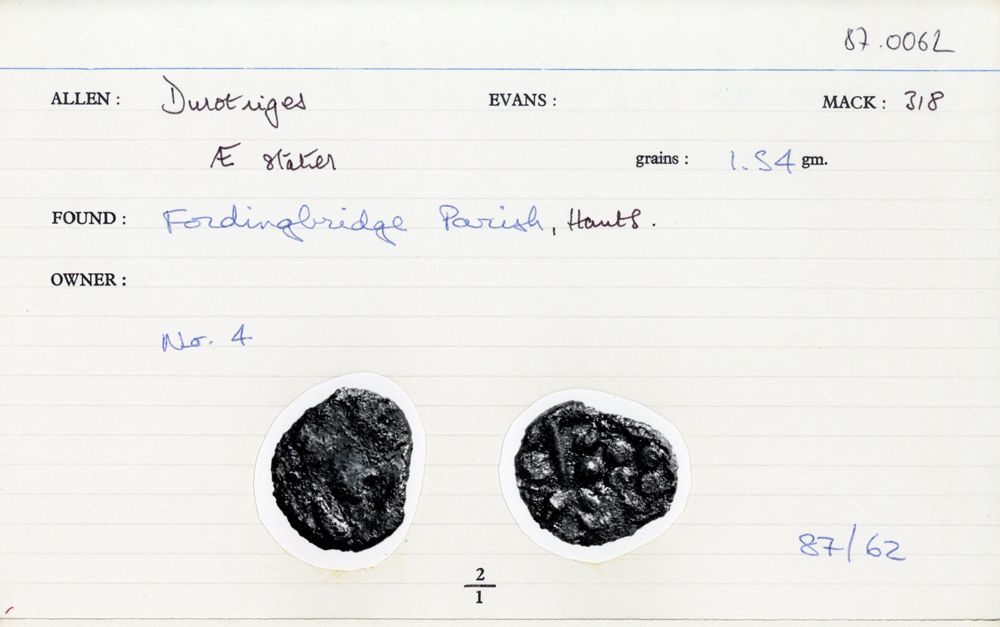 87.0062
ALLEN : Durotriges EVANS : MACK : 318
Æ stater grains : 1.54 gm.
FOUND : Fordingbridge Parish, Hants.
OWNER :
No. 4
87/62
2
1